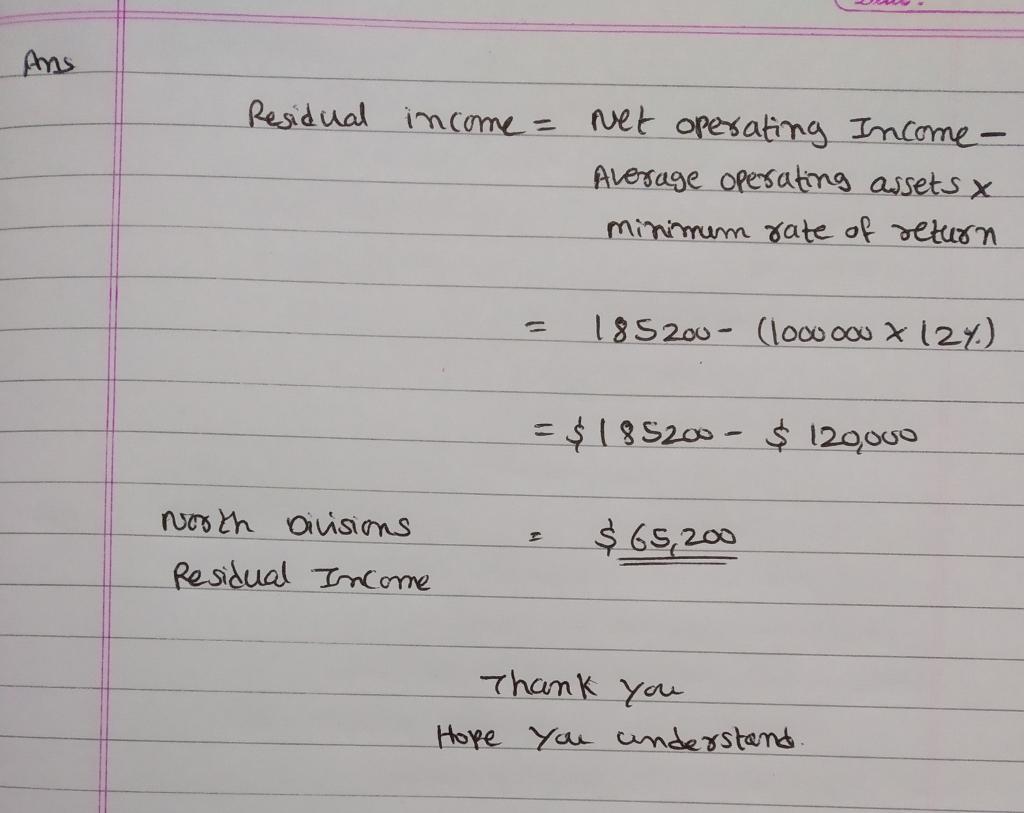 Ans
Residual income = Net operating Income –
Average operating assets x
minimum rate of return
= 185200 – (1000000 x 12%)
= $185200 – $ 120,000
North Divisions = $ 65,200
Residual Income
Thank you
Hope you understand.